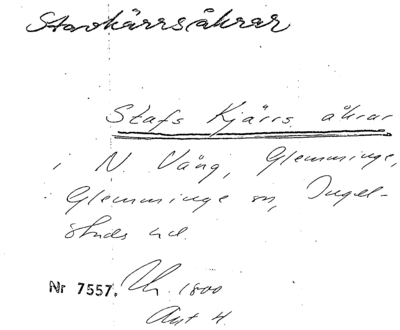 Stavkärrsåkrar
Stafs Kjärrs åkrar
i N. Vång, Glemminge,
Glemminge sn, Ingel-
stads hd.
Nr 7557. Uh. 1800
Akt 4.